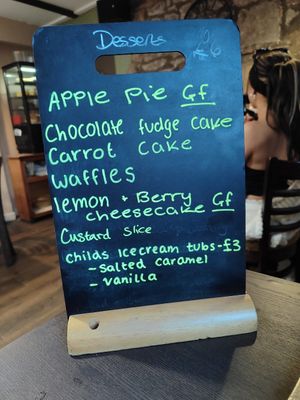 Desserts £6
APPLE Pie Gf
Chocolate fudge cake
Carrot cake
Waffles
lemon + Berry
cheesecake Gf
Custard Slice
Childs icecream tubs-£3
- Salted caramel
- vanilla